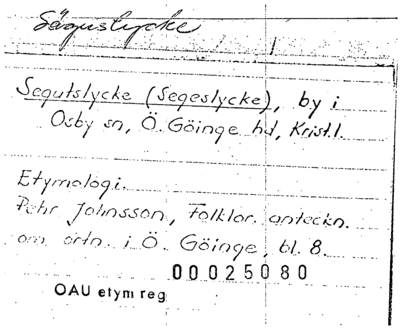 Säguslycke
Segutslycke (Segeslycke), by i
Osby sn, Ö. Göinge hd, Krist.l.
Etymologi.
Pehr Johnsson, Folklor. anteckn.
om ortn. i Ö. Göinge, bl. 8.
00025080
OAU etym reg